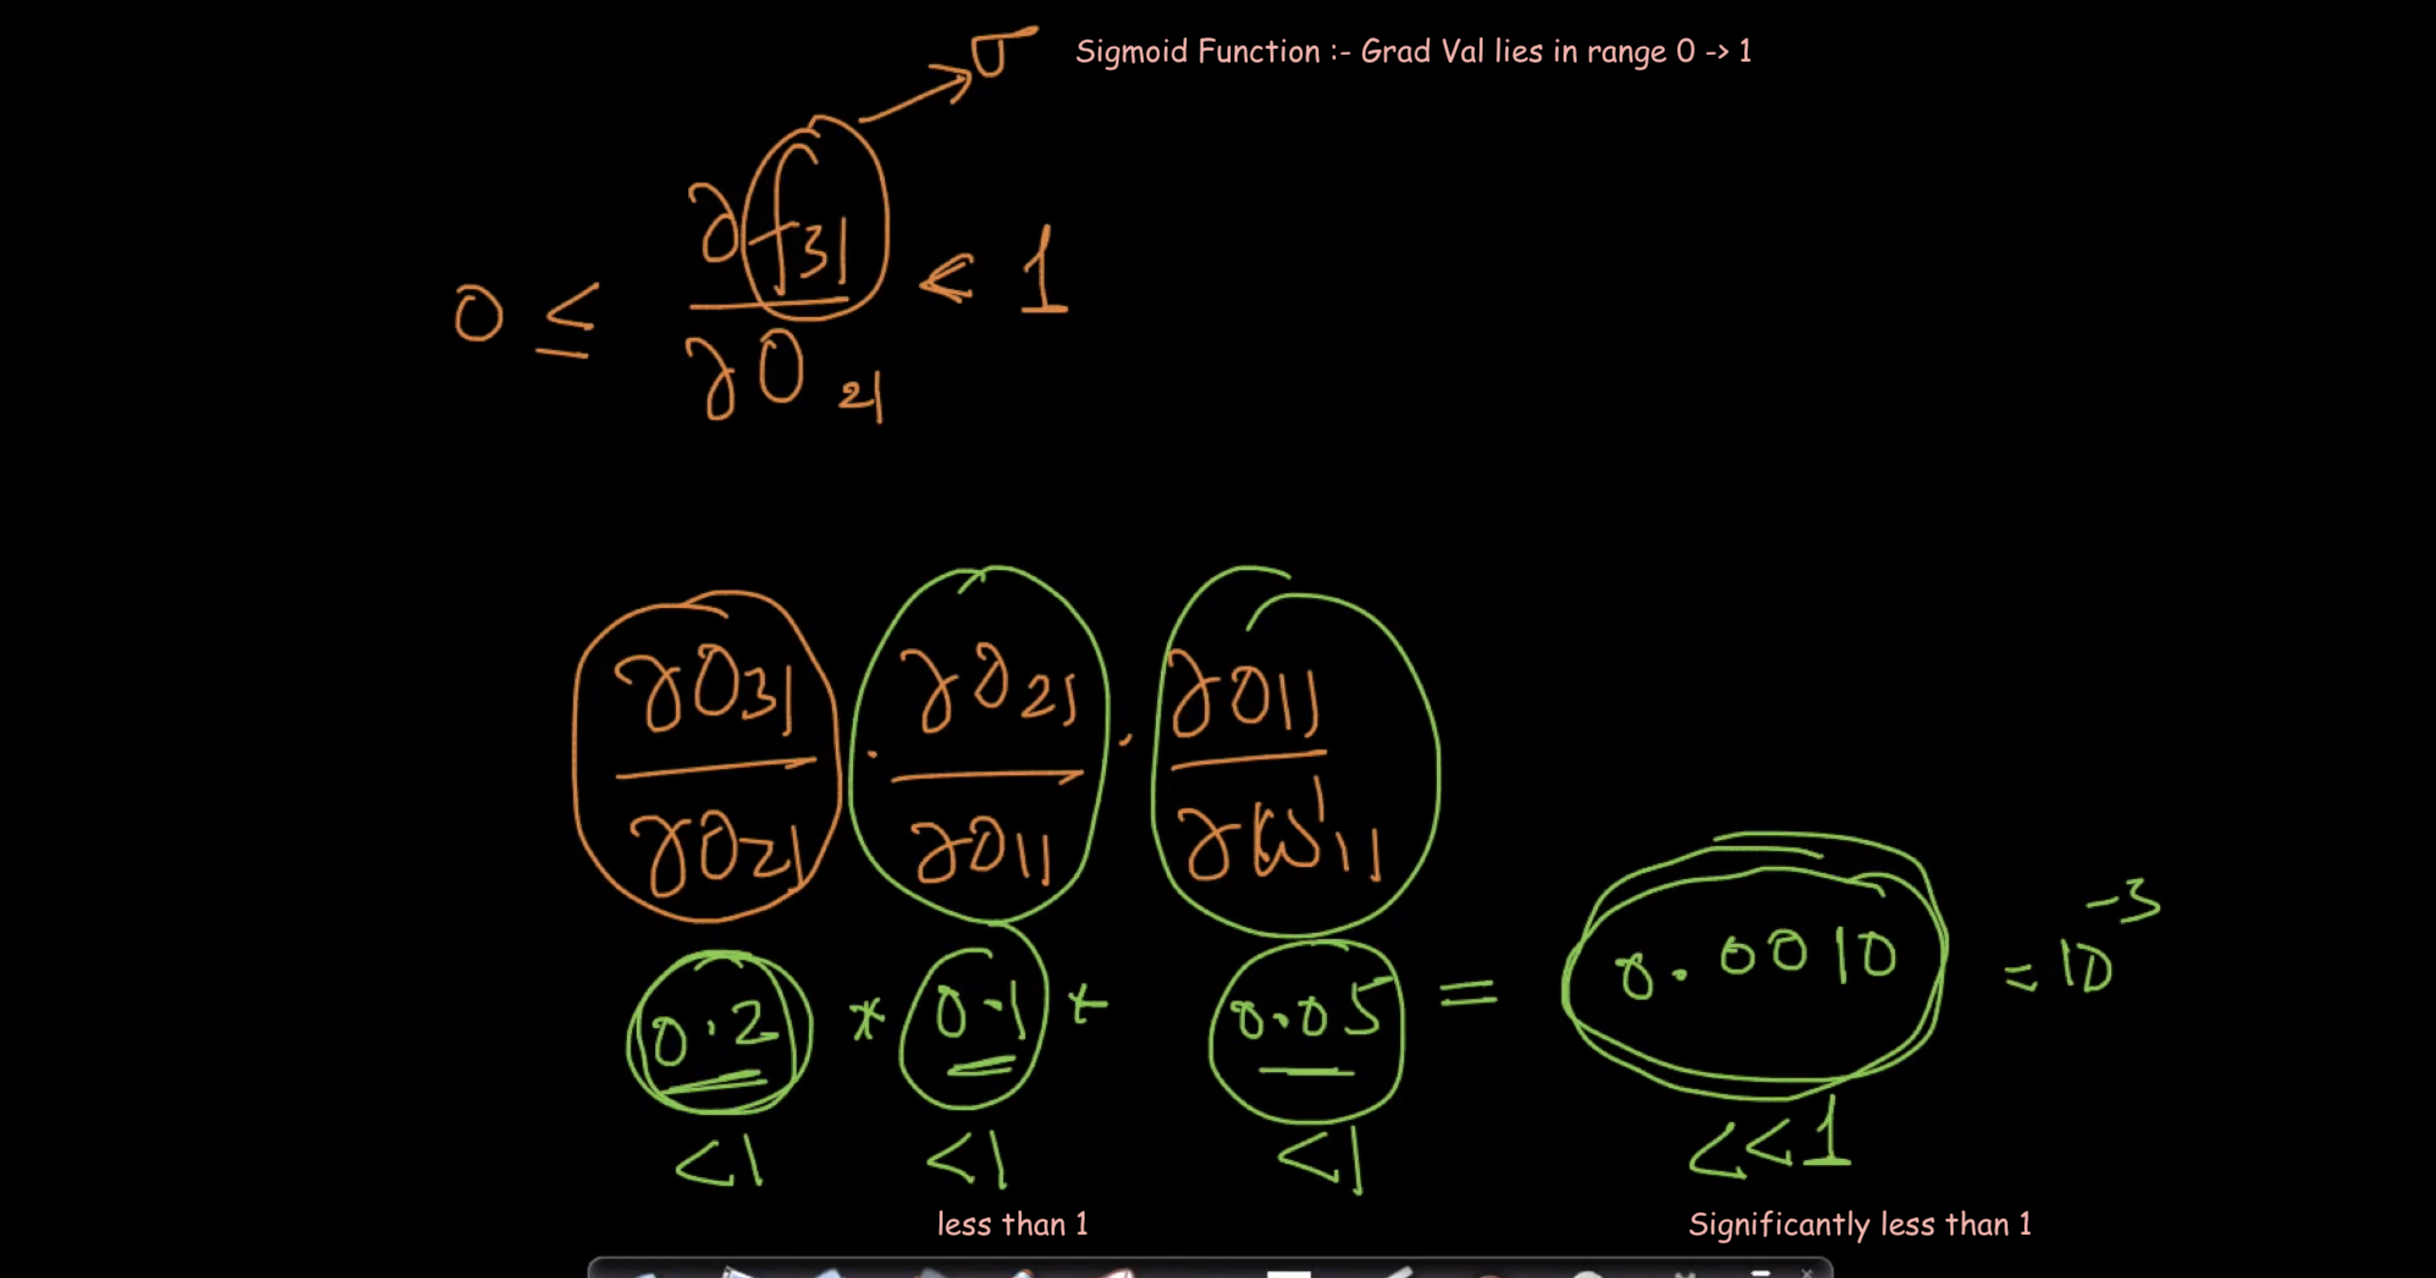 σ Sigmoid Function :- Grad Val lies in range 0 -> 1
0 ≤ ∂f31 / ∂O21 < 1
∂O31 / ∂O21 . ∂O21 / ∂O11 . ∂O11 / ∂W¹11
0.2 * 0.1 * 0.05 = 0.0010 = 10⁻³
<1 <1 <1 <<1
less than 1 Significantly less than 1